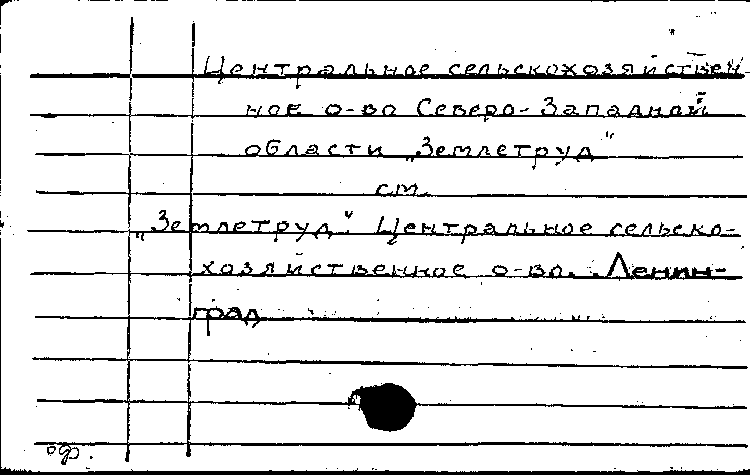 Центральное сельскохозяйствен
ное о-во Северо-Западной
области „Землетруд"
см.
„Землетруд". Центральное сельско-
хозяйственное о-во. Ленин-
град
оф.